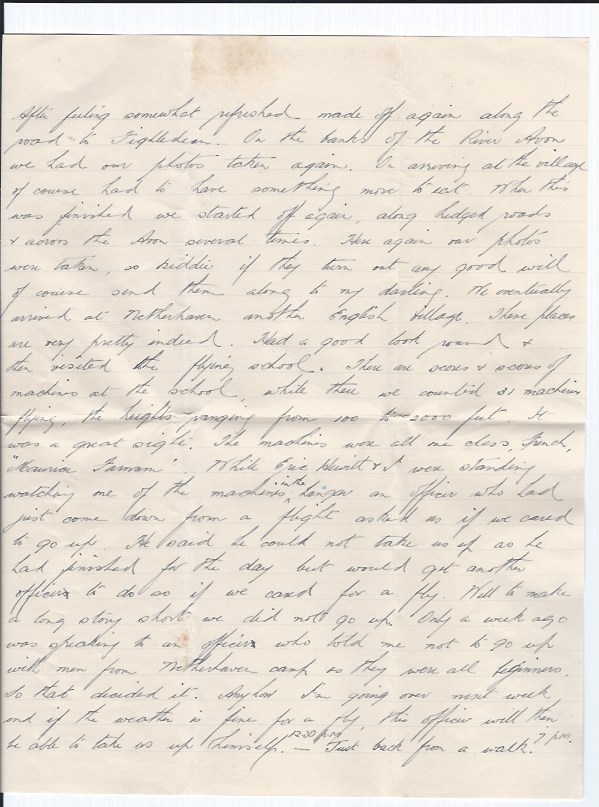 After feeling somewhat refreshed made off again along the
road to Fighledean. On the banks of the River Avon
we had our photos taken again. On arriving at the village
of course had to have something more to eat. When this
was finished we started off again, along hedged roads
& across the Avon several times. Here again our photos
were taken, so Kiddie if they turn out any good will
of course send them along to my darling. We eventually
arrived at Netherhaven another English village. These places
are very pretty indeed. Had a good look round &
then visited the flying school. There are scores & scores of
machines at the school, while there we counted 31 machines
flying, the heights ranging from 100 to 2000 feet. It
was a great sight. The machines were all one class, French,
"Maurice Farnam". While Eric Hewitt & I were standing
watching one of the machines in the hangar an officer who had
just come down from a flight asked us if we cared
to go up. He said he could not take us up as he
had finished for the day but would get another
officer to do so if we cared for a fly. Well to make
a long story short we did not go up. Only a week ago
was speaking to an officer who told me not to go up
with men from Netherhaven camp as they were all beginners.
So that decided it. Anyhow I'm going over next week
and if the weather is fine for a fly, this officer will then
be able to take us up himself. 12.30 pm — Just back from a walk. 7 p.m.